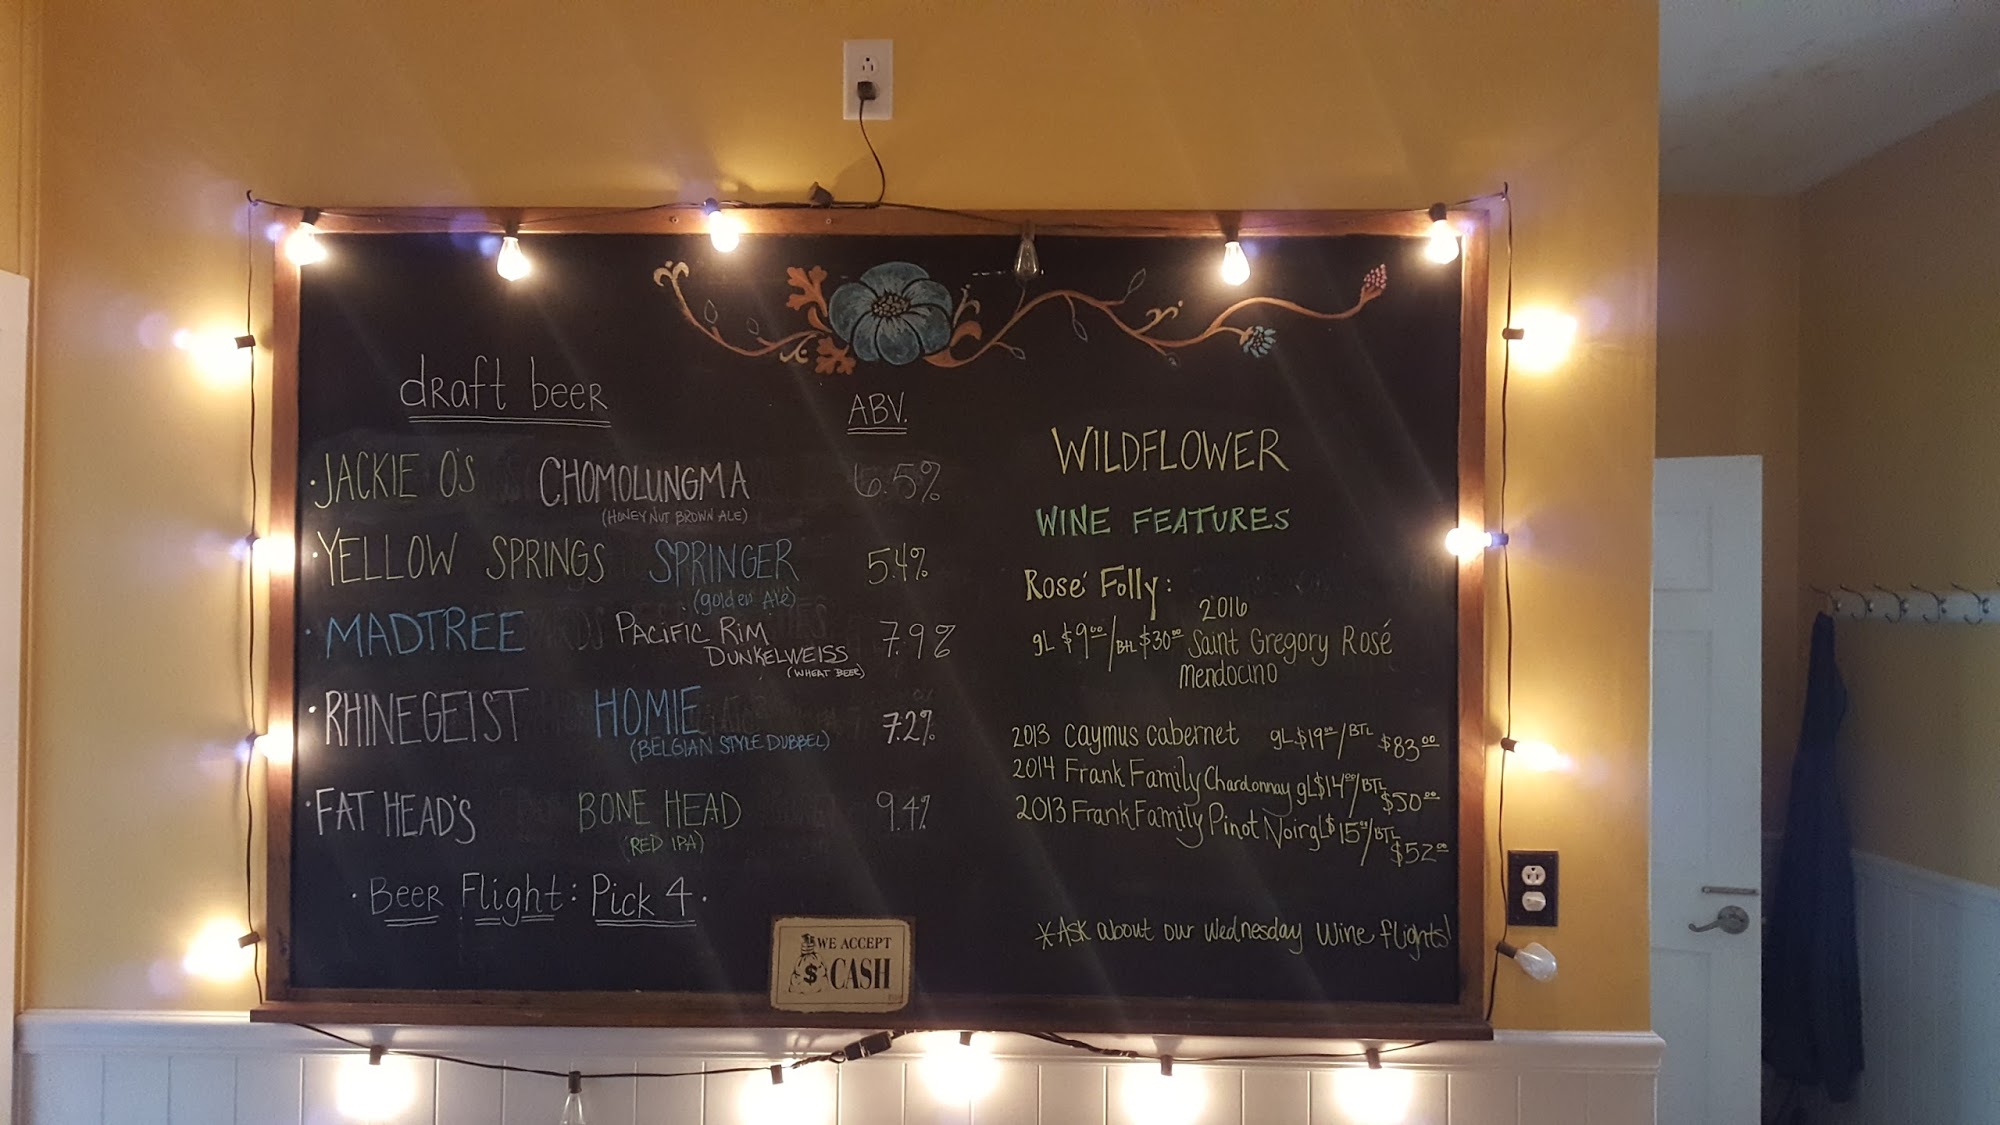 draft beer
ABV.
· JACKIE O'S CHOMOLUNGMA 6.5%
(HONEY NUT BROWN ALE)
· YELLOW SPRINGS SPRINGER 5.4%
(golden Ale)
· MADTREE PACIFIC RIM
DUNKELWEISS 7.9%
(WHEAT BEER)
· RHINEGEIST HOMIE 7.2%
(BELGIAN STYLE DUBBEL)
· FAT HEAD'S BONE HEAD 9.4%
(RED IPA)
· Beer Flight: Pick 4 ·
WE ACCEPT
$ CASH
WILDFLOWER
WINE FEATURES
Rosé Folly:
2016
gL $9.00/BtL $30.00 Saint Gregory Rosé
Mendocino
2013 Caymus Cabernet gL $19.00/BTL $83.00
2014 Frank Family Chardonnay gL $14.00/BTL $50.00
2013 Frank Family Pinot Noir gL $15.00/BTL $52.00
*Ask about our Wednesday Wine flights!